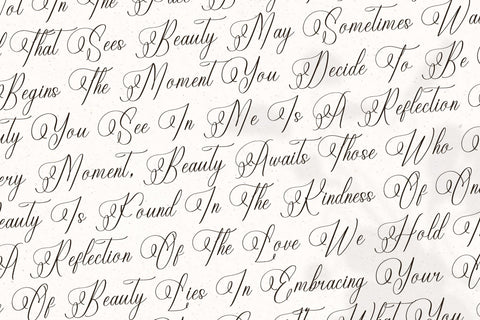 Not In The Face
That Sees Beauty May Sometimes
Begins The Moment You Decide To Be
You See In Me Is A Reflection
Moment. Beauty Awaits Those Who
Beauty Is Found In The Kindness Of
A Reflection Of The Love We Hold
Of Beauty Lies In Embracing Your
What You